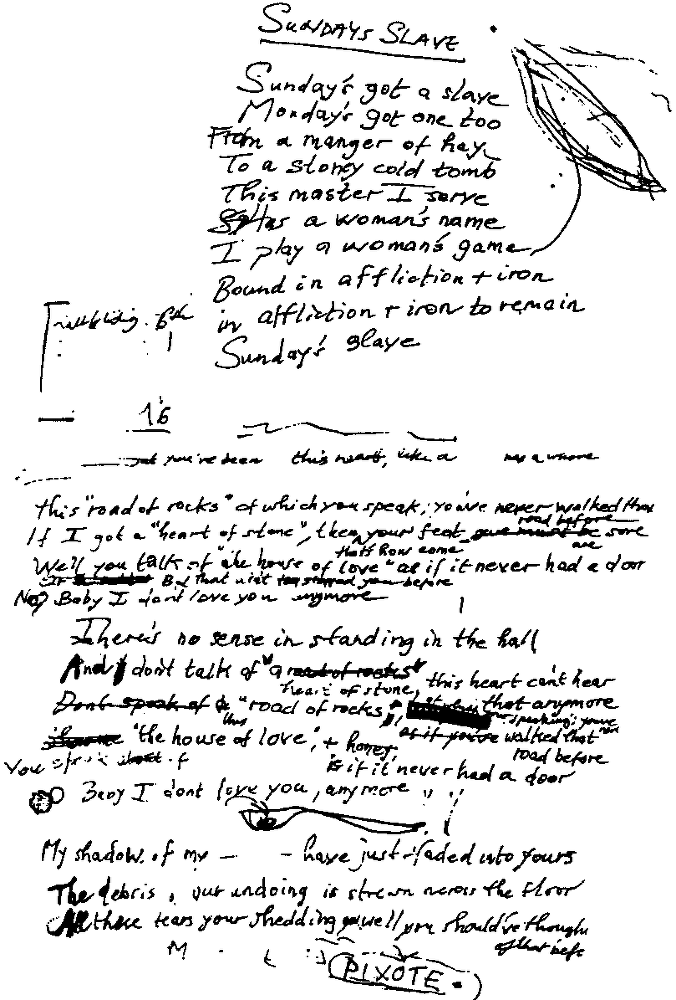 SUNDAYS SLAVE
Sunday's got a slave
Monday's got one too
From a manger of hay
To a stoney cold tomb
This master I serve
Has a woman's name
I play a woman's game
Bound in affliction + iron
in affliction + iron to remain
Sunday's slave
6th
16
you've been this heart, like a
this "road of rocks" of which you speak, you've never walked that
road before
If I got a "heart of stone", then your feet must be sore
are
that's how come
We'll you talk of "the house of love" as if it never had a door
But that ain't you before
No Baby I don't love you anymore
There's no sense in standing in the hall
And don't talk of "a road of rocks"
heart of stone, this heart can't hear
Dont speak of a "road of rocks", that anymore
speaking; you've
this as if you've walked that
"the house of love", + honey, road before
You speak
as if it never had a door
Baby I dont love you, anymore
My shadow of my – – have just faded into yours
The debris, our undoing is strewn across the floor
All those tears your shedding you should've thought
of that before
M
PIXOTE